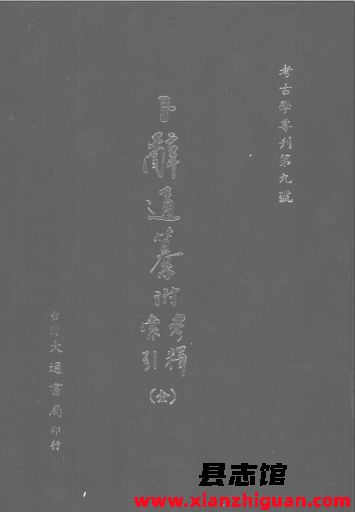 考古學專刊第九號
卜辭通纂附考釋索引(全)
台灣大通書局印行
县志馆
www.xianzhiguan.com